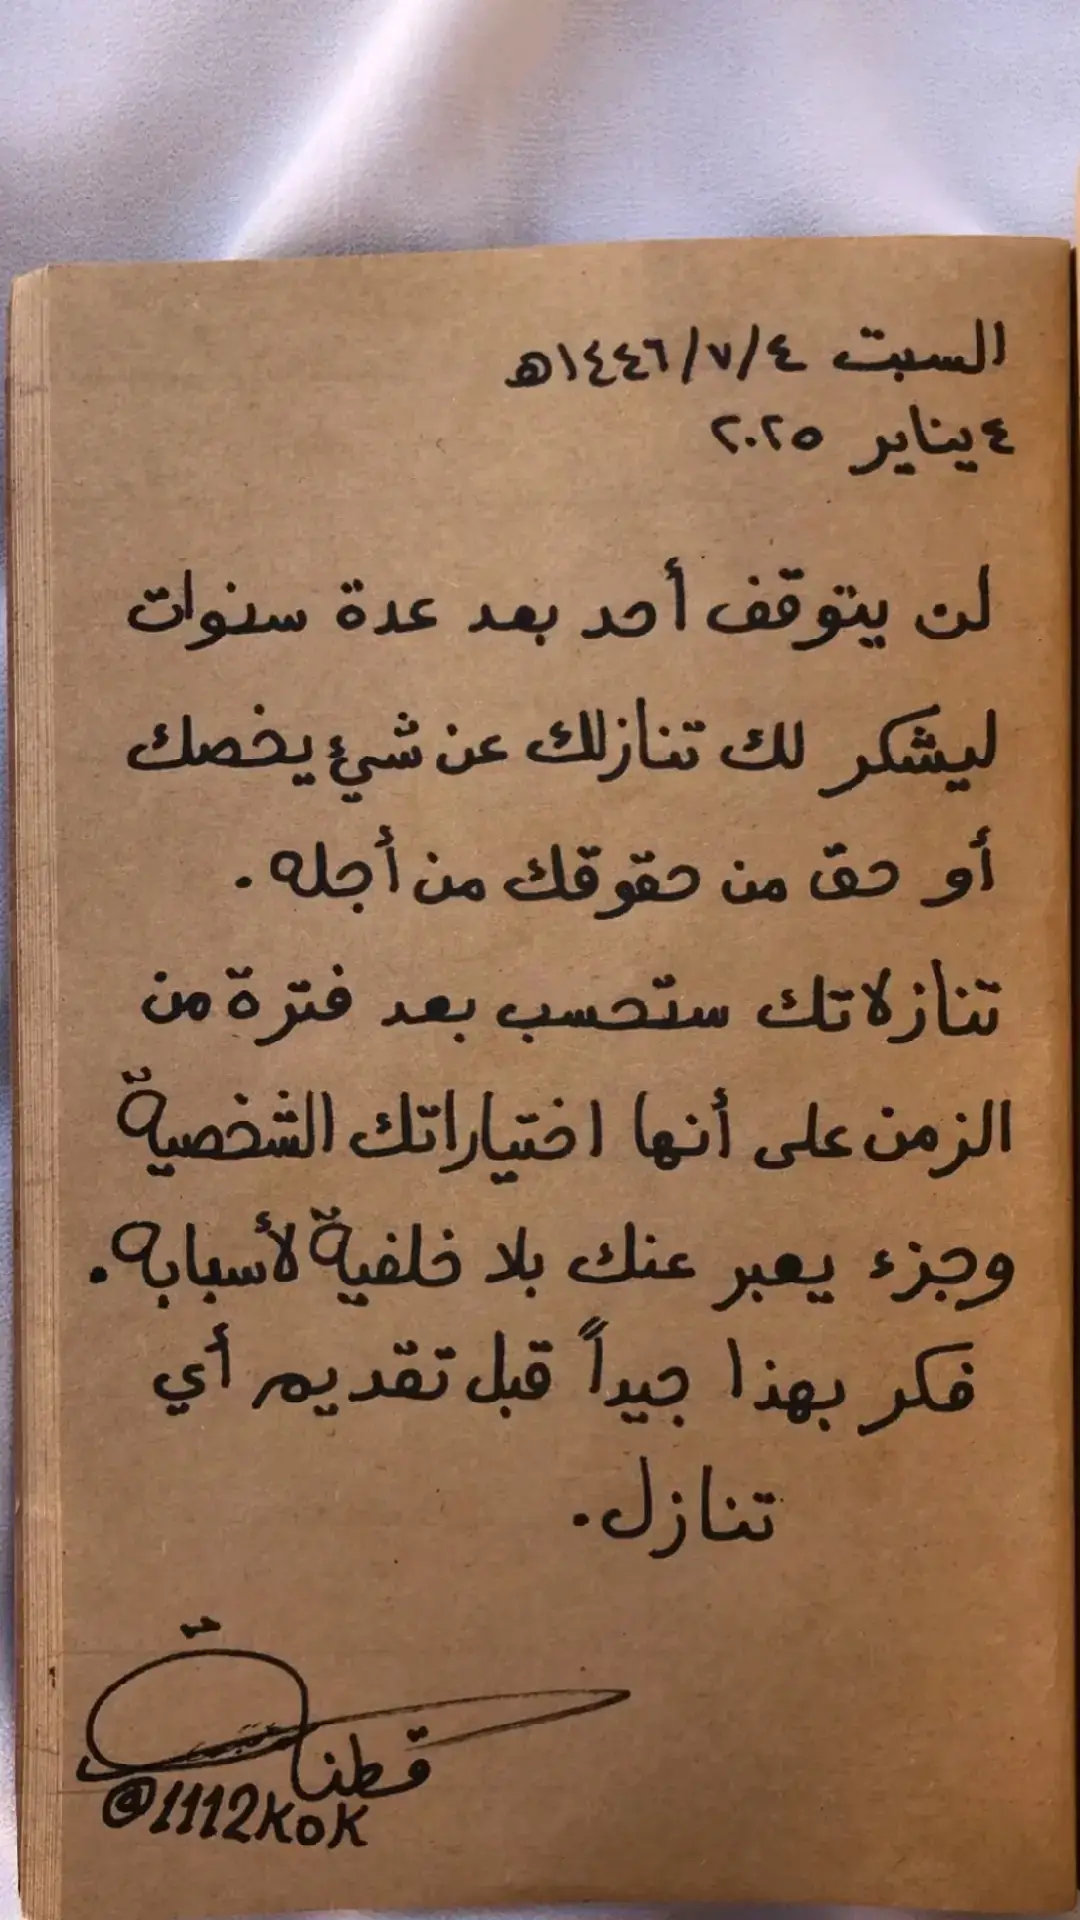 السبت ٤/٧/١٤٤٦هـ
٤ يناير ٢٠٢٥
لن يتوقف أحد بعد عدة سنوات
ليشكر لك تنازلك عن شيء يخصك
أو حق من حقوقك من أجله.
تنازلاتك ستحسب بعد فترة من
الزمن على أنها اختياراتك الشخصية
وجزء يعبر عنك بلا خلفية لأسبابه.
فكر بهذا جيداً قبل تقديم أي
تنازل.
@1112KOK